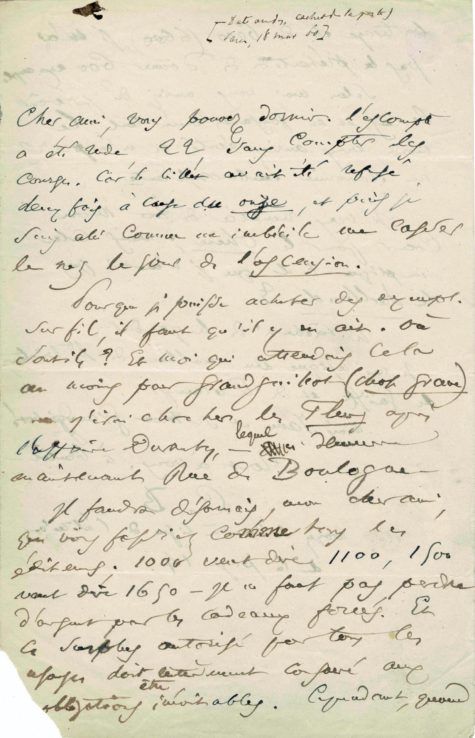 [Date audr. cachet de la poste)
Paris, 18 mai 60]
Cher ami, vous pouvez dormir. l'escompte
a été de 22 f sans compter les
courses. Car le billet avait été refusé
deux fois à cause du onze, et puis je
suis allé comme un imbécile me casser
le nez le jour de l'ascension.
Pour que je puisse acheter des exempl.
sur fil, il faut qu'il y en ait. Où
sont-ils ? Et moi qui attendais cela
au moins pour Grandguillot (chose grave)
j'irai chercher les Fleurs après
l'affaire Duranty, — lequel demeure
maintenant Rue de Boulogne —
Il faudra désormais, mon cher ami,
que vous fassiez comme tous les
éditeurs. 1000 veut dire 1100, 1500
veut dire 1650 — Il ne faut pas perdre
d'argent par les cadeaux forcés. Et
ce surplus autorisé par tous les
usages doit être consacré aux
obligations inévitables. Cependant, quand